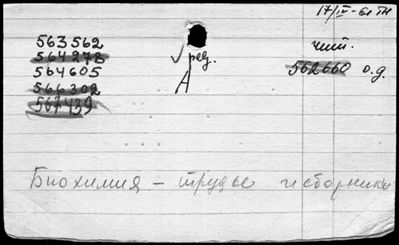 17/IV-61 тн
563562
564278
564605
566302
567439
рец.
А
чит.
562660 о.д.
Биохимия – труды и сборники